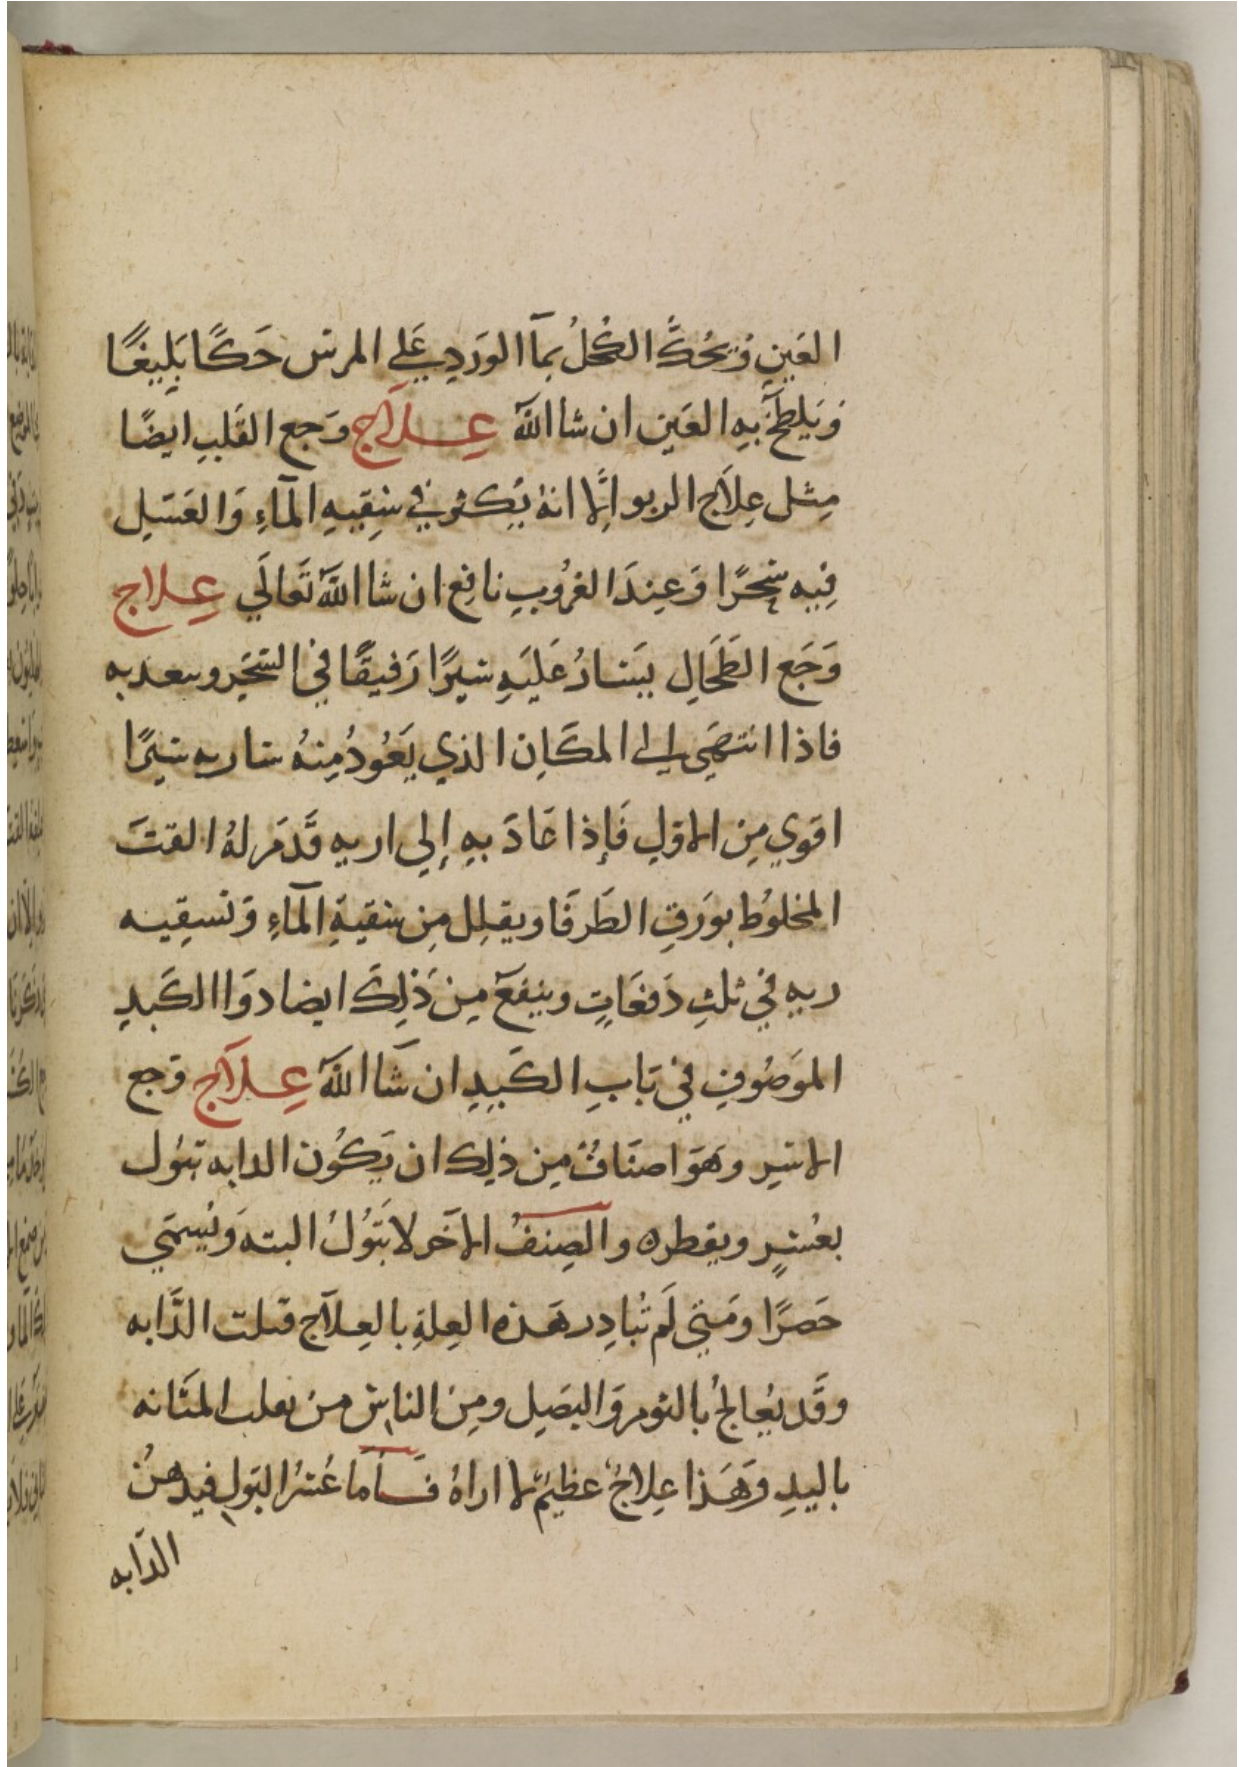 العَينِ وَيُحَكُّ الكُحلُ بمآ الوَردِ عَلي المرس حَكًا بَلِيغًا
وَيلطخ بهِ العَين ان شا اللهُ عِلاج وَجع القَلبِ ايضًا
مِثل عِلاَج الربو اِلَّا انهُ يُكثر في سَقيهِ المَآءِ وَالعَسَل
فِيه سَحرًا وَعِندَ الغرُوبِ نافِع ان شا اللهُ تَعَالَي عِلاج
وَجَع الطَحَالِ يسَارُ عَليَهِ سَيرًا رَفيقًا في السَحَر وسعد به
فاذا انتهَي الي المكَانِ الذي يَعُودُ مِنهُ سَار بهِ سَيرًا
اقوي مِن الاَولِ فَإذا عَادَ بهِ إلي اريهِ قَدمَ لهُ القتَ
المخلوُط بوَرقِ الطَرفَا ويقلِل مِن سَقيةِ المَآءِ وَتسقيه
ريهِ في ثلثِ دَفعَاتٍ وينفع مِن ذَلِكَ ايضا دوَا الكَبدِ
الموَصُوفِ في بَابِ الكَبِدِ ان شَا اللهُ عِلاَج وَجع
الاسَرِ وهَوَ اصنَافٌ مِن ذلِك ان يَكُون الدابه تبُول
بعُسرٍ ويقطره والصِنفُ الاخَر لا تبَوُلُ البته وَيُسمَي
حَصرًا ومَتي لَم تُبادِر هَذه العِلةِ بالعِلاَج قتلت الدَابه
وقَد يُعالجُ بالثومِ وَالبَصَلِ ومِن الناسِ من يعلب المثَانه
باليدِ وَهَذا عِلاجٌ عظيمٌ لا اراهُ فَامَا عُسرُ البَولِ فيدهنُ
الدَابه